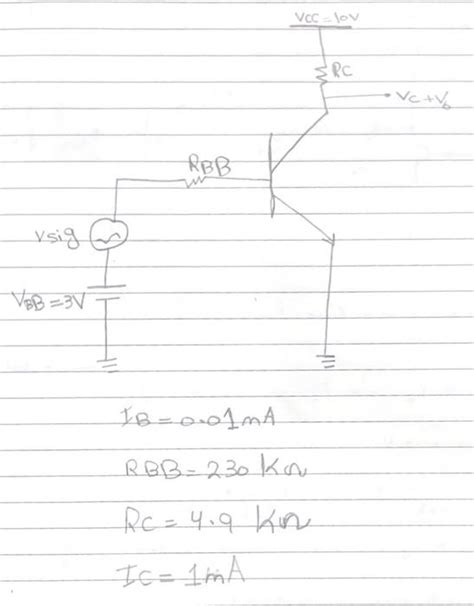 VCC=10V
RC
VC+Vo
RBB
Vsig
VBB=3V
IB=0.01mA
RBB=230 KΩ
RC=4.9 KΩ
IC=1mA